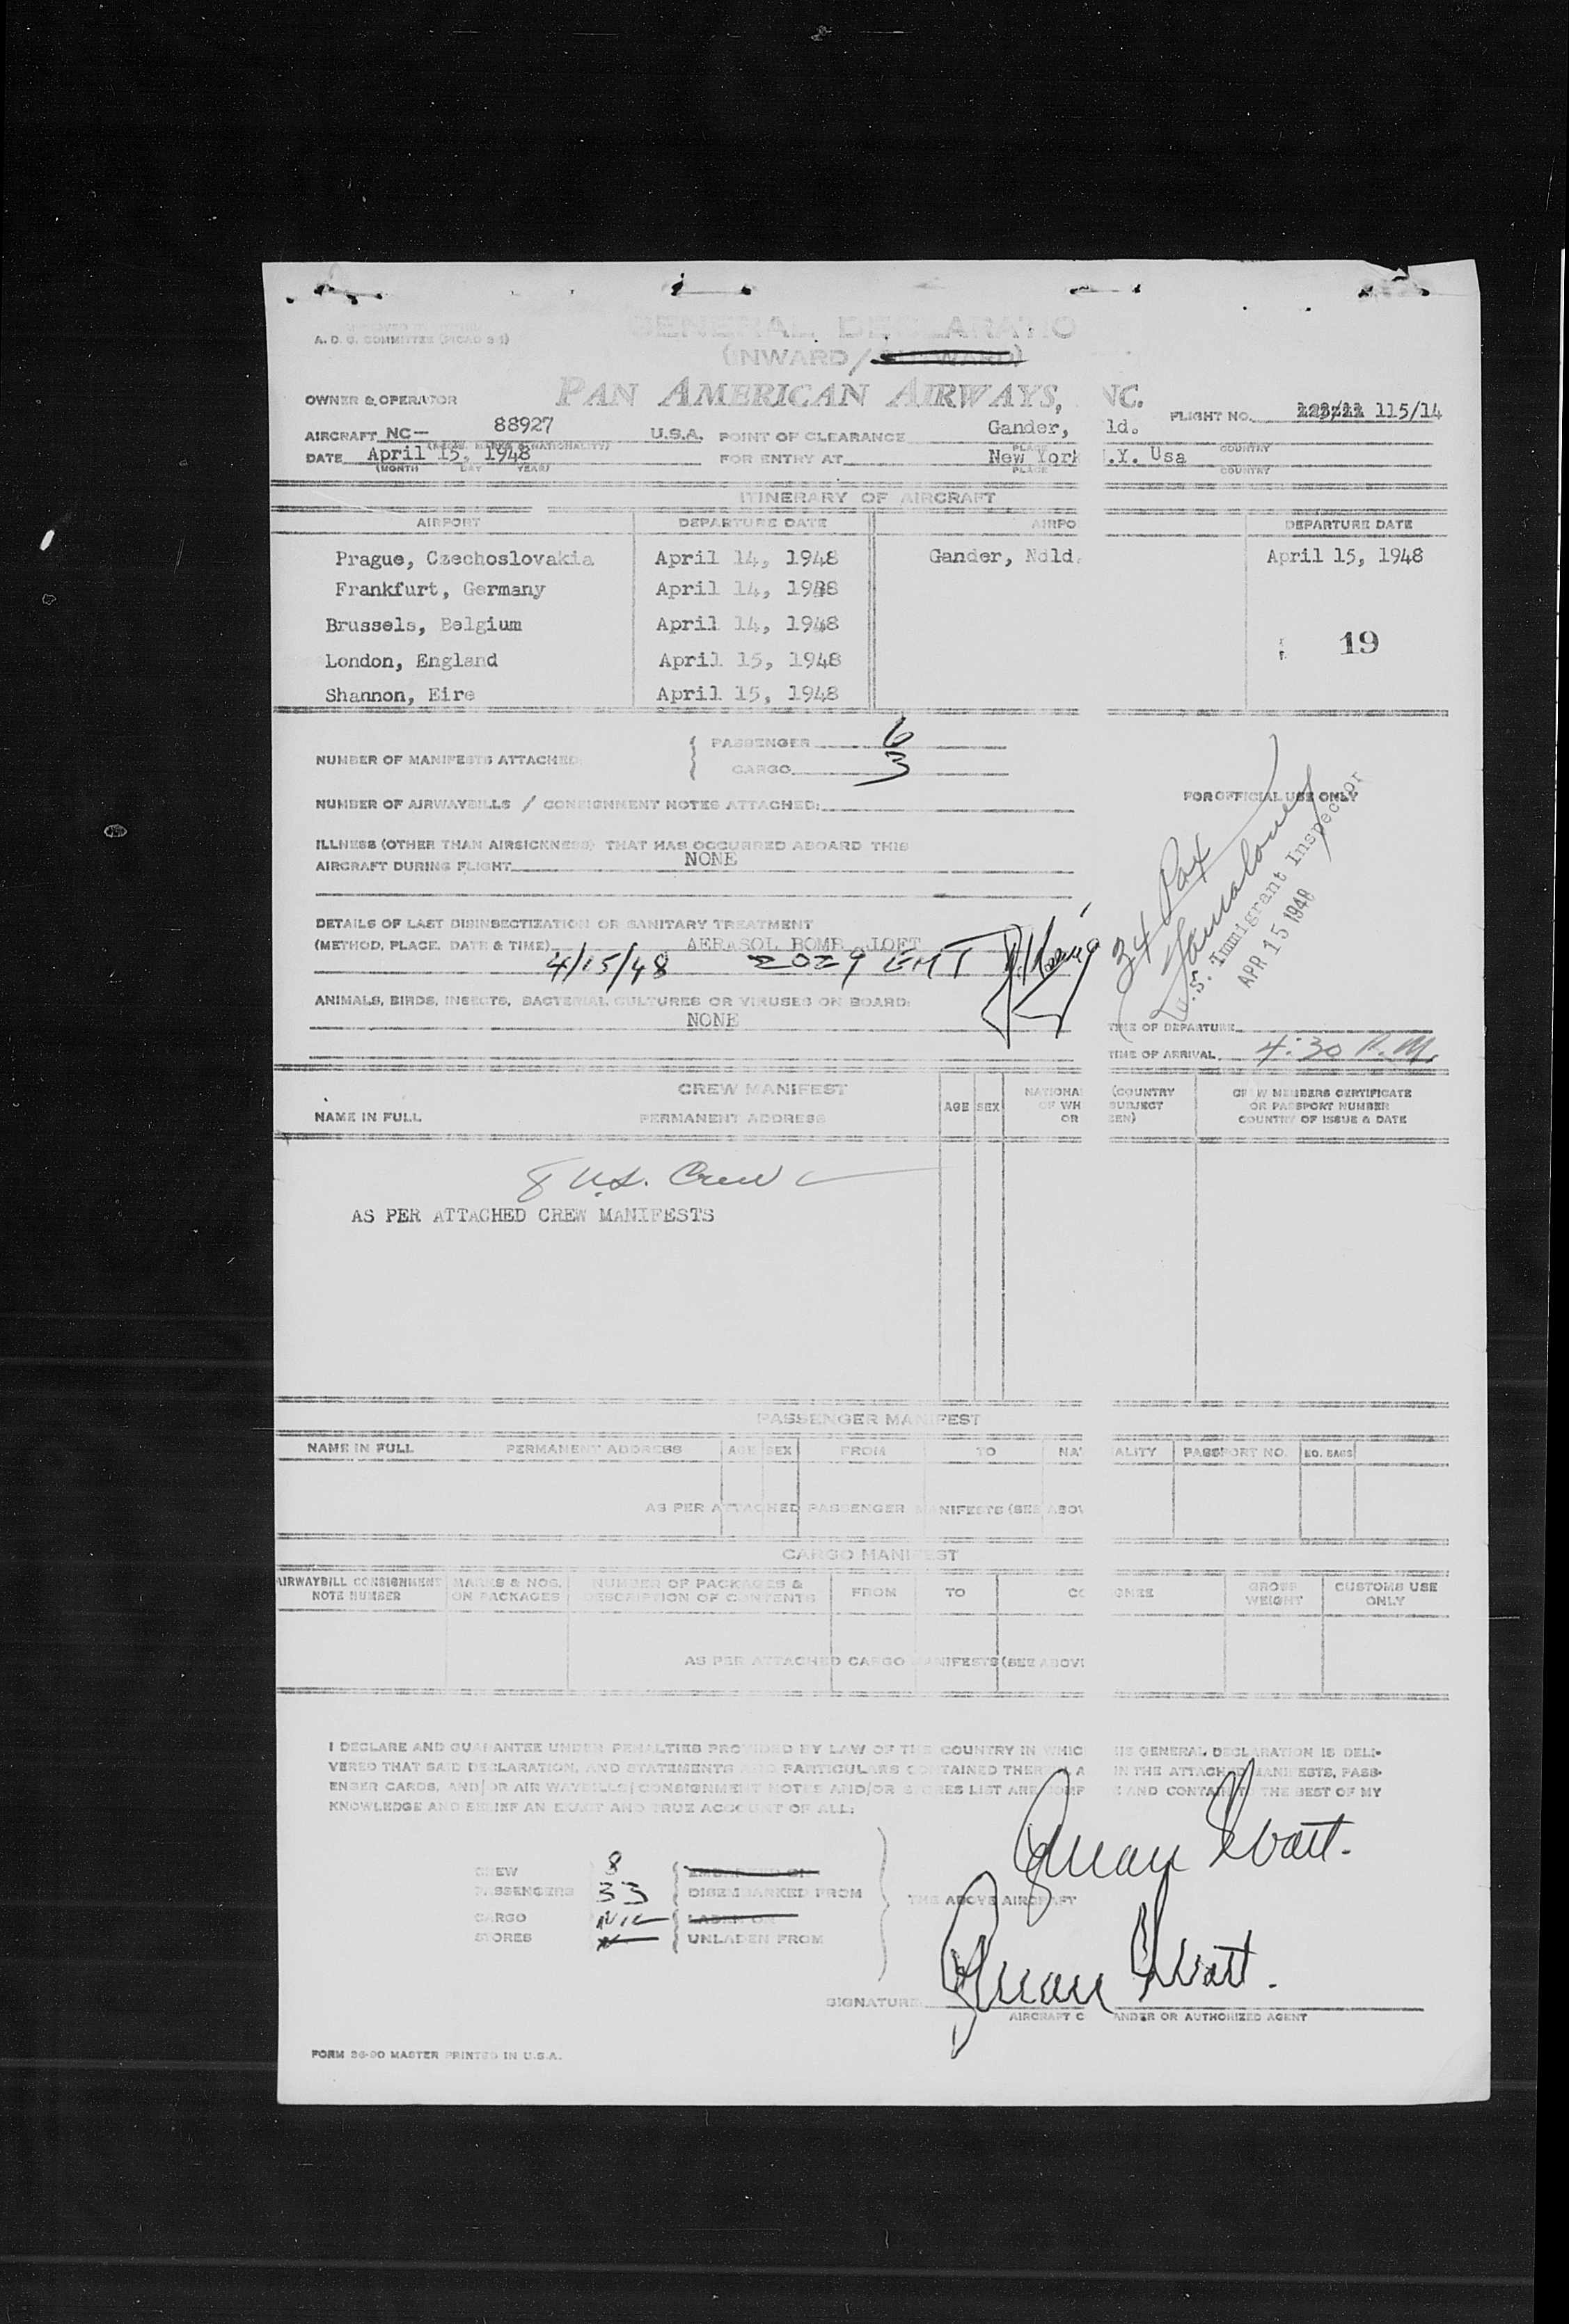 A. D. C. COMMITTEE (PICAO 2-1)
GENERAL DECLARATIO
(INWARD/OUTWARD)
OWNER & OPERATOR PAN AMERICAN AIRWAYS, NC.
FLIGHT NO. 115/14
AIRCRAFT NC— 88927 U.S.A. POINT OF CLEARANCE Gander, ld.
PLACE COUNTRY
DATE April 15, 1948 FOR ENTRY AT New York .Y. Usa
(MONTH DAY YEAR) PLACE COUNTRY
ITINERARY OF AIRCRAFT
AIRPORT DEPARTURE DATE AIRPO DEPARTURE DATE
Prague, Czechoslovakia April 14, 1948 Gander, Ndld. April 15, 1948
Frankfurt, Germany April 14, 1948
Brussels, Belgium April 14, 1948
19
London, England April 15, 1948
Shannon, Eire April 15, 1948
NUMBER OF MANIFESTS ATTACHED: PASSENGER 6
CARGO 3
NUMBER OF AIRWAYBILLS / CONSIGNMENT NOTES ATTACHED:
FOR OFFICIAL USE ONLY
ILLNESS (OTHER THAN AIRSICKNESS) THAT HAS OCCURRED ABOARD THIS
AIRCRAFT DURING FLIGHT NONE
34 Pax
U.S. Immigrant Inspector
APR 15 1948
DETAILS OF LAST DISINSECTIZATION OR SANITARY TREATMENT
(METHOD, PLACE, DATE & TIME) AERASOL BOMB
4/15/48 2029 GMT
ANIMALS, BIRDS, INSECTS, BACTERIAL CULTURES OR VIRUSES ON BOARD:
NONE
TIME OF DEPARTURE
TIME OF ARRIVAL 4:30 P.M.
CREW MANIFEST
NAME IN FULL PERMANENT ADDRESS AGE SEX NATIONA (COUNTRY
OF WH SUBJECT
OR ZEN)
CREW MEMBERS CERTIFICATE
OR PASSPORT NUMBER
COUNTRY OF ISSUE & DATE
8 U.S. Crew
AS PER ATTACHED CREW MANIFESTS
PASSENGER MANIFEST
NAME IN FULL PERMANENT ADDRESS AGE SEX FROM TO NAT ALITY PASSPORT NO. NO. BAGS
AS PER ATTACHED PASSENGER MANIFESTS (SEE ABOV
CARGO MANIFEST
AIRWAYBILL CONSIGNMENT
NOTE NUMBER
MARKS & NOS.
ON PACKAGES
NUMBER OF PACKAGES &
DESCRIPTION OF CONTENTS
FROM TO CO GNEE
GROSS
WEIGHT
CUSTOMS USE
ONLY
AS PER ATTACHED CARGO MANIFESTS (SEE ABOVE
I DECLARE AND GUARANTEE UNDER PENALTIES PROVIDED BY LAW OF THE COUNTRY IN WHIC IS GENERAL DECLARATION IS DELI-
VERED THAT SAID DECLARATION, AND STATEMENTS AND PARTICULARS CONTAINED THEREIN A IN THE ATTACHED MANIFESTS, PASS-
ENGER CARDS, AND/OR AIR WAYBILLS/CONSIGNMENT NOTES AND/OR STORES LIST ARE COMP E AND CONTAIN TO THE BEST OF MY
KNOWLEDGE AND BELIEF AN EXACT AND TRUE ACCOUNT OF ALL:
CREW 8 EMBARKED ON
PASSENGERS 33 DISEMBARKED FROM THE ABOVE AIRCRAFT
CARGO NIL LADEN ON
STORES UNLADEN FROM
SIGNATURE
AIRCRAFT C ANDER OR AUTHORIZED AGENT
FORM 36-90 MASTER PRINTED IN U.S.A.